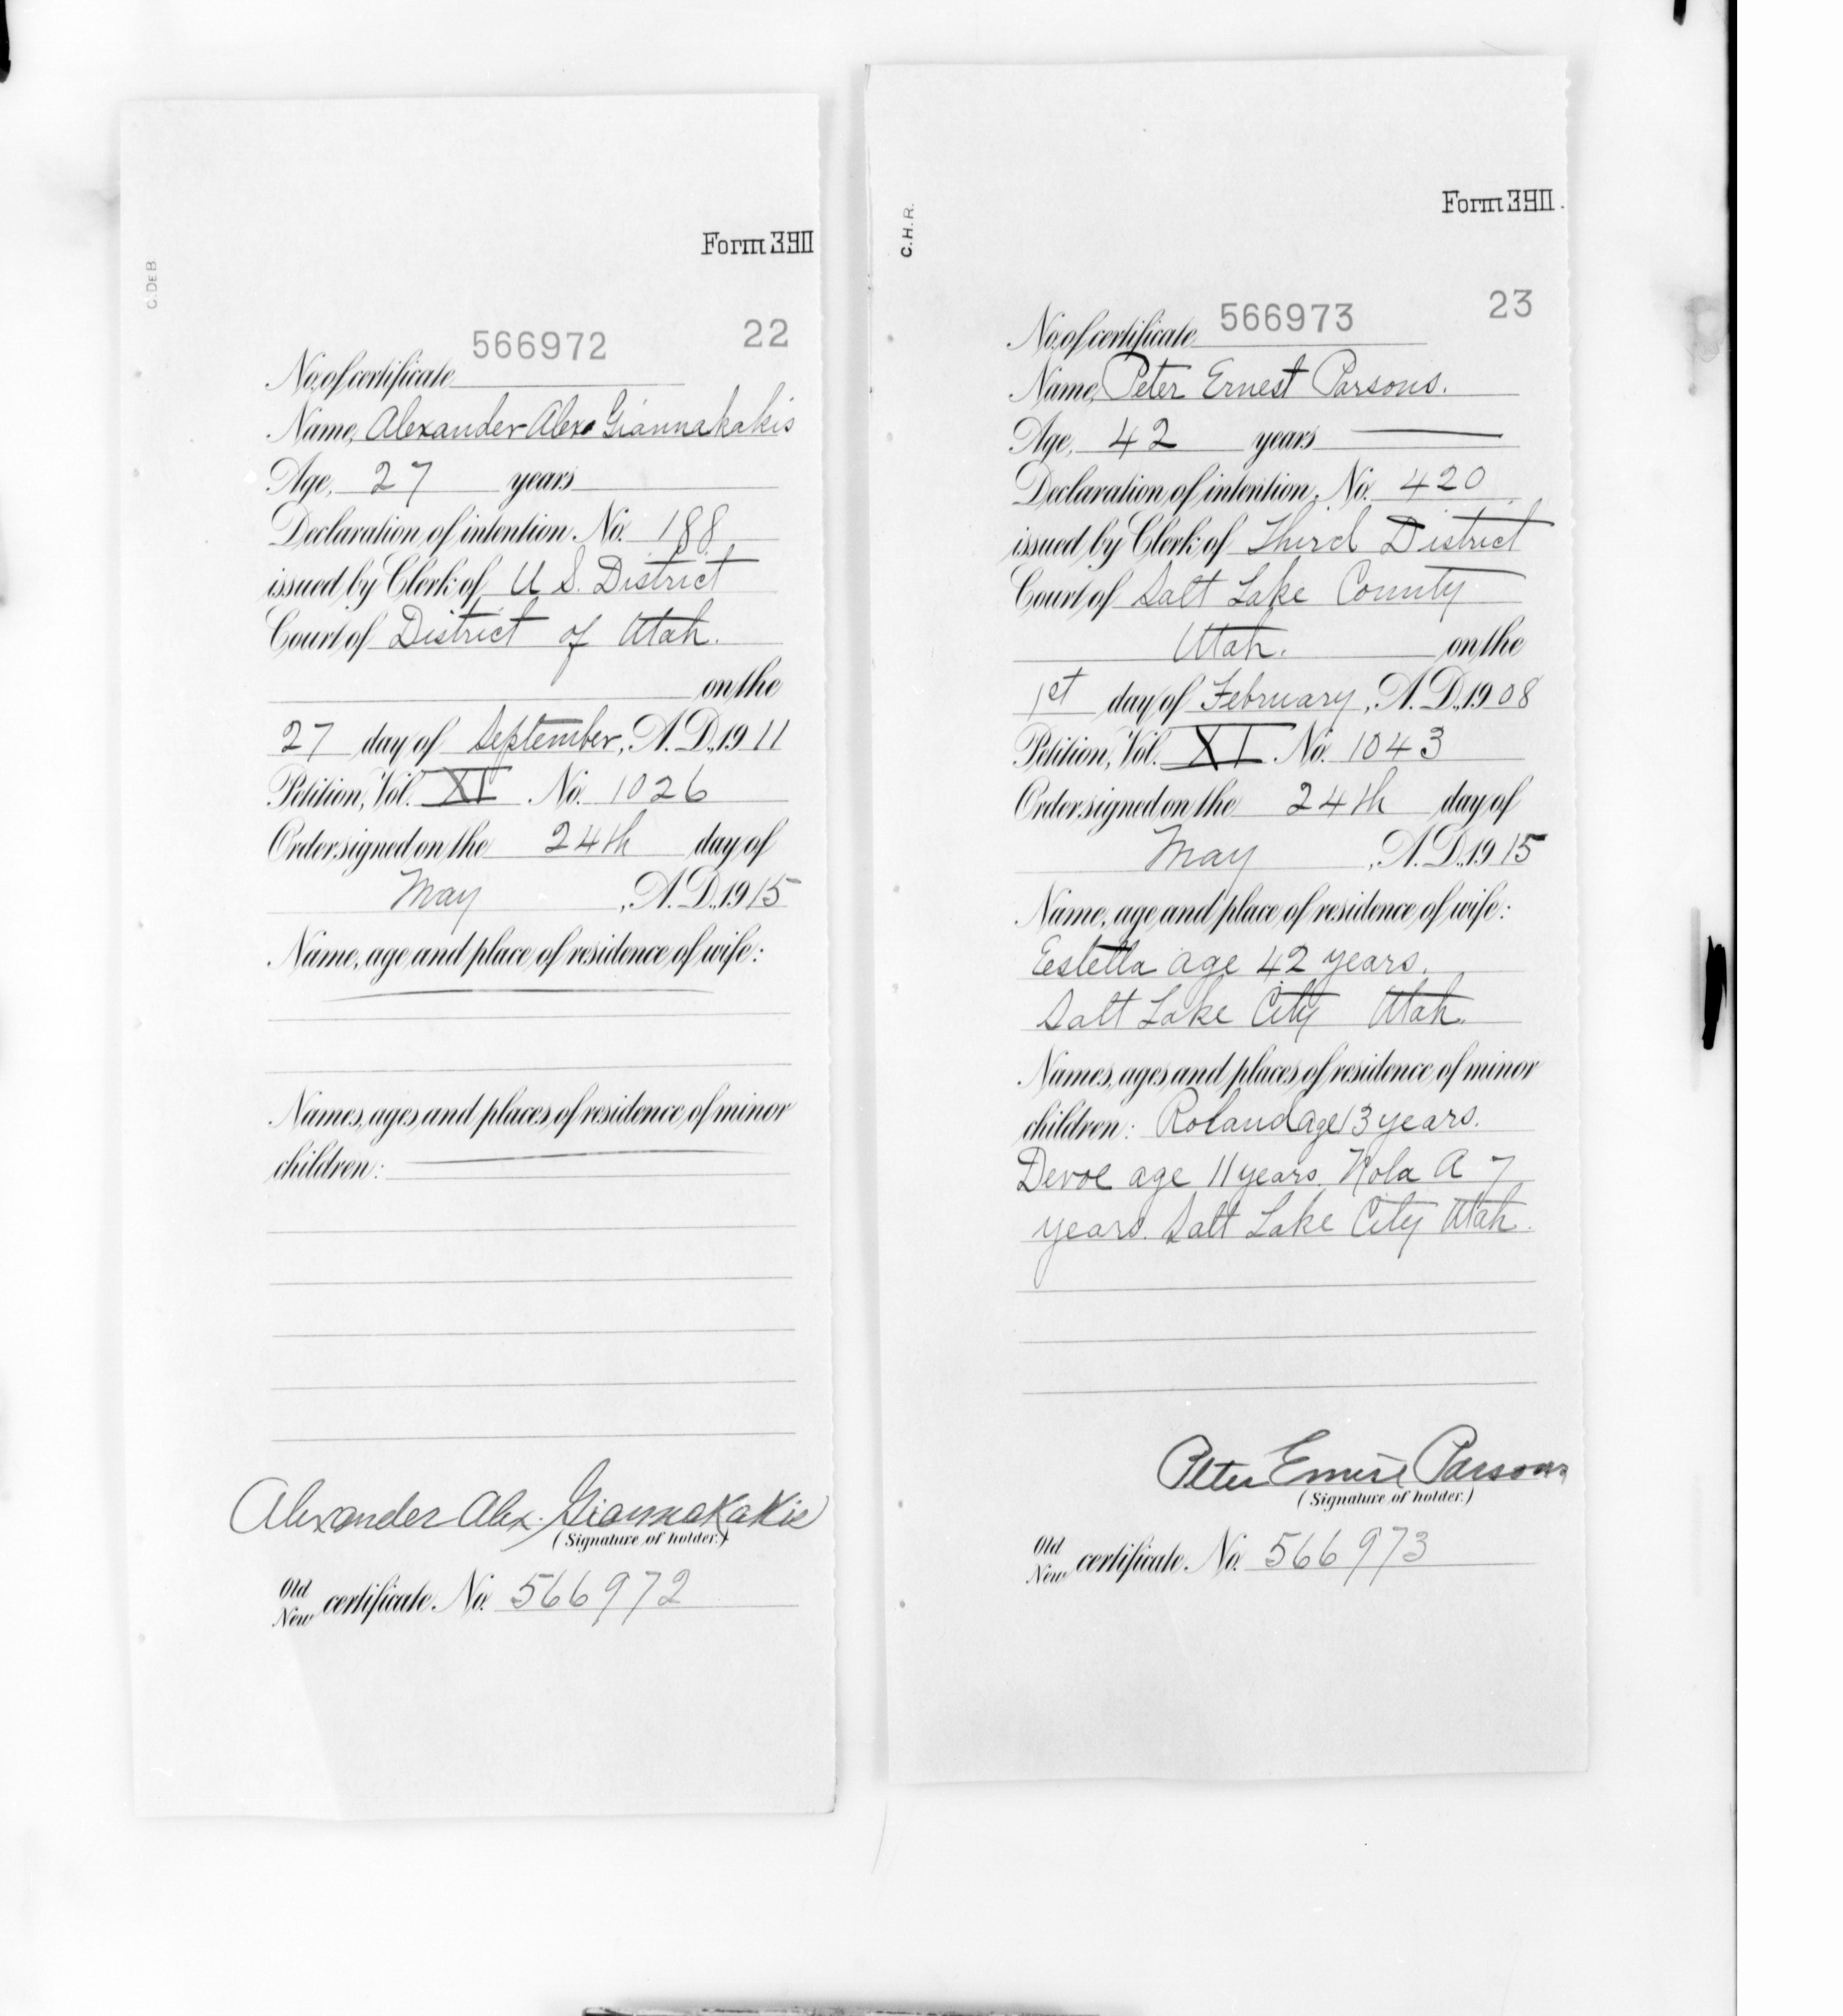 C. DEB
Form 390
566972 22
No. of certificate
Name, Alexander Alex Giannakakis
Age, 27 years
Declaration of intention, No. 188
issued by Clerk of U S. District
Court of District of Utah.
on the
27 day of September, A.D., 19 11
Petition, Vol. XI No. 1026
Order signed on the 24th day of
May, A.D., 19 15
Name, age and place of residence of wife:
Names, ages and places of residence of minor
children:
Alexander Alex. Giannakakis
(Signature of holder.)
Old
New certificate No. 566972
C.H.R.
Form 390.
566973 23
No. of certificate
Name, Peter Ernest Parsons.
Age, 42 years
Declaration of intention, No. 420
issued by Clerk of Third District
Court of Salt Lake County
Utah. on the
1st day of February, A.D., 19 08
Petition, Vol. XI. No. 1043
Order signed on the 24th day of
May, A.D., 19 15
Name, age and place of residence of wife:
Eestella age 42 years.
Salt Lake City Utah.
Names, ages and places of residence of minor
children: Roland age 13 years.
Devoe age 11 years. Nola A 7
years. Salt Lake City Utah.
Peter Ernest Parsons
(Signature of holder.)
Old
New certificate No. 566973